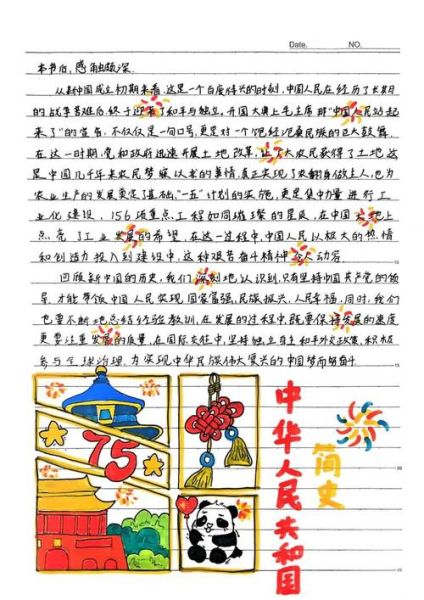 Date. NO.
本书后,感触颇深.
从新中国成立初期来看,这是一个百废待兴的时刻,中国人民在经历了长期
的战争苦难后,终于迎来了和平与独立,开国大典上毛主席那"中国人民站起
来了"的宣告,不仅仅是一句口号,更是对一个饱经沧桑民族的巨大鼓舞.
在这一时期,党和政府迅速开展土地改革,让广大农民获得了土地,这
是中国几千年来农民梦寐以求的事情,真正实现了农翻身做主人,也为
农业生产的发展奠定了基础,"一五"计划的实施,更是集中力量进行工
业化建设,156项重点工程如同璀璨的星辰,在中国大地上
点亮了工业发展的希望,在这一过程中,中国人民以极大的热情
和创造力投入到建设中,这种艰苦奋斗精神令人动容.
回顾新中国的历史,我们深刻地认识到,只有坚持中国共产党的领
导,才能带领中国人民实现国家富强,民族振兴,人民幸福,同时,我们
也要不断地总结经验教训,在发展的过程中,既要保持发展的速度
更要注重发展的质量,在国际交往中,坚持独立自主和平外交政策,积极
参与全球治理,为实现中华民族伟大复兴的中国梦而努奋斗
75
中华人民共和国
简史